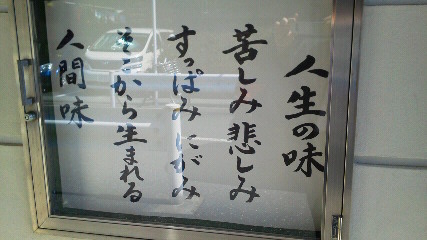 人生の味
苦しみ悲しみ
すっぱみにがみ
そこから生まれる
人間味